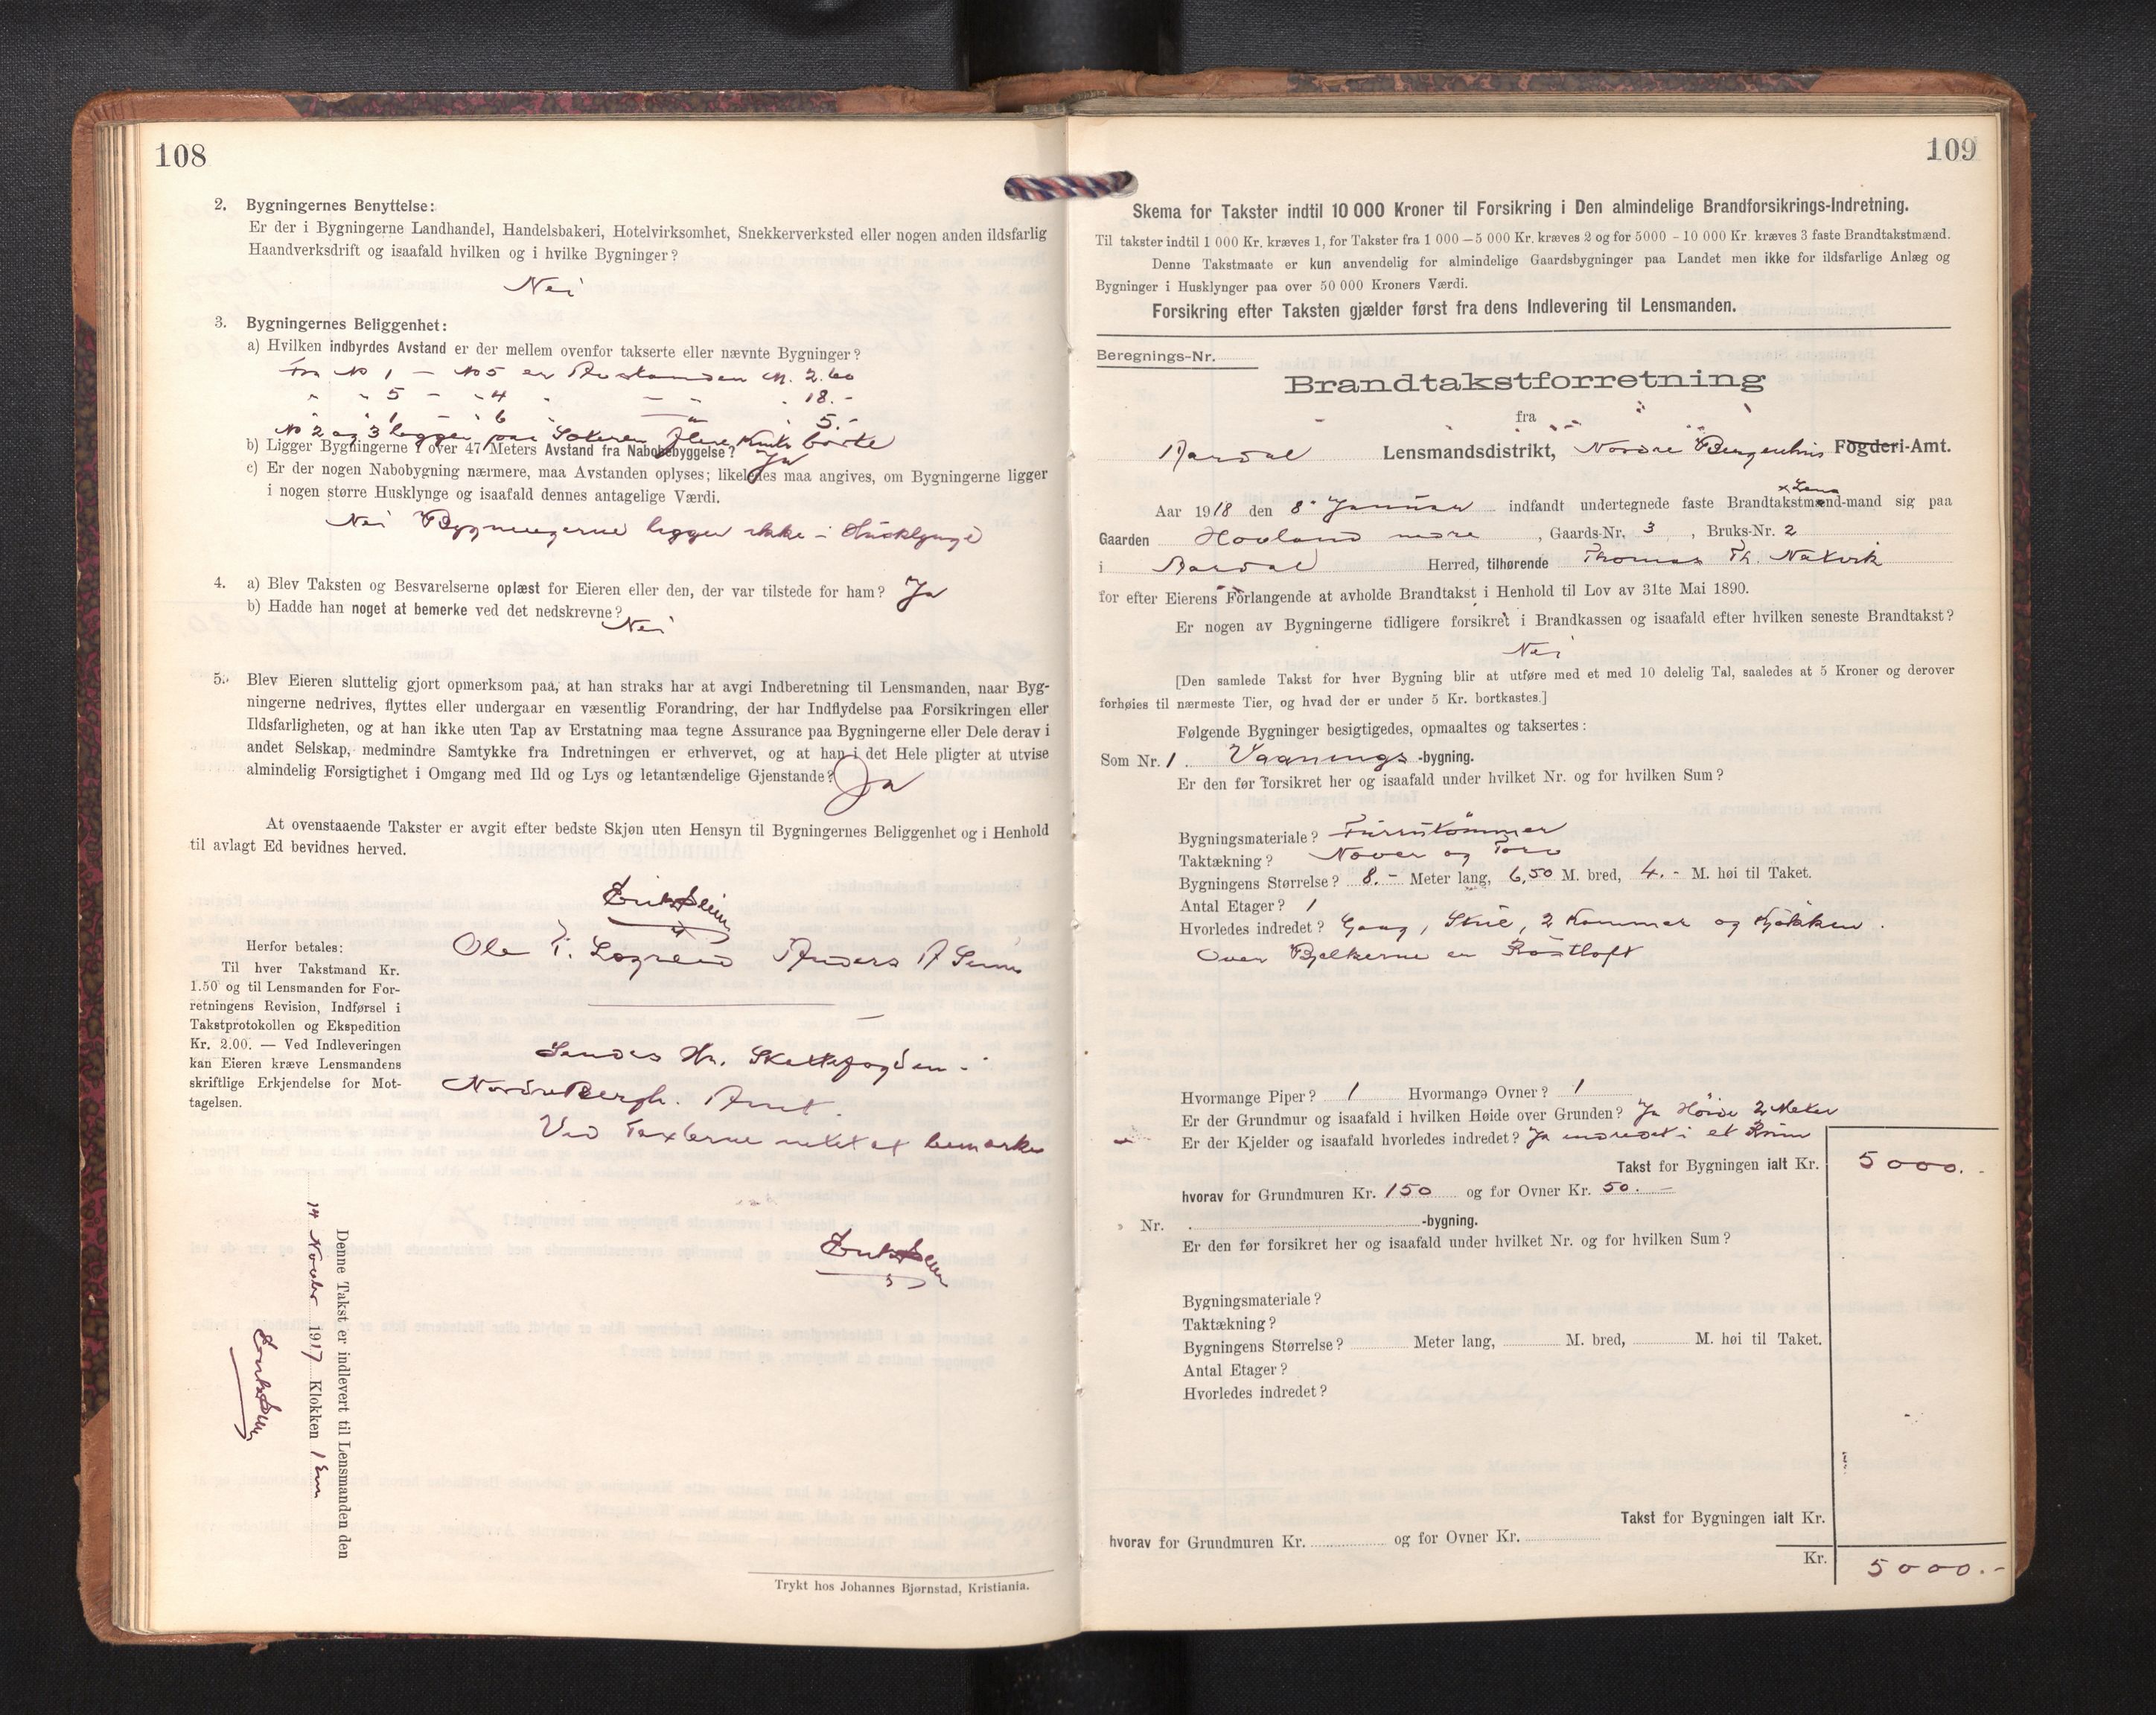 108
2. Bygningernes Benyttelse:
Er der i Bygningerne Landhandel, Handelsbakeri, Hotelvirksomhet, Snekkerverksted eller nogen anden ildsfarlig
Haandverksdrift og isaafald hvilken og i hvilke Bygninger?
Nei
3. Bygningernes Beliggenhet:
a) Hvilken indbyrdes Avstand er der mellem ovenfor takserte eller nævnte Bygninger?
Fra No 1 – No 5 er Avstanden M. 2.60
" " 5 – " 4 " – " " 18.-
" " 1 – " 6 " " " 5.-
No 2 og 3 ligger paa Stølen flere Km borte
b) Ligger Bygningerne i over 47 Meters Avstand fra Nabobebyggelse? Ja
c) Er der nogen Nabobygning nærmere, maa Avstanden oplyses; likeledes maa angives, om Bygningerne ligger
i nogen større Husklynge og isaafald dennes antagelige Værdi.
Nei Bygningerne ligger ikke i Husklynge
4. a) Blev Taksten og Besvarelserne oplæst for Eieren eller den, der var tilstede for ham? Ja
b) Hadde han noget at bemerke ved det nedskrevne?
Nei
5. Blev Eieren sluttelig gjort opmerksom paa, at han straks har at avgi Indberetning til Lensmanden, naar Byg-
ningerne nedrives, flyttes eller undergaar en væsentlig Forandring, der har Indflydelse paa Forsikringen eller
Ildsfarligheten, og at han ikke uten Tap av Erstatning maa tegne Assurance paa Bygningerne eller Dele derav i
andet Selskap, medmindre Samtykke fra Indretningen er erhvervet, og at han i det Hele pligter at utvise
almindelig Forsigtighet i Omgang med Ild og Lys og letantændelige Gjenstande? Ja
At ovenstaaende Takster er avgit efter bedste Skjøn uten Hensyn til Bygningernes Beliggenhet og i Henhold
til avlagt Ed bevidnes herved.
Ole T. Anders A
Herfor betales:
Til hver Takstmand Kr.
1.50 og til Lensmanden for For-
retningens Revision, Indførsel i
Takstprotokollen og Ekspedition
Kr. 2.00. — Ved Indleveringen
kan Eieren kræve Lensmandens
skriftlige Erkjendelse for Mot-
tagelsen.
Sendes Hr. Skattefogden i
Nordre Bergh. Amt.
Ved Taxterne intet at bemærke
Denne Takst er indlevert til Lensmanden den
14 Novbr 1917 Klokken 1 Em
Trykt hos Johannes Bjørnstad, Kristiania.
109
Skema for Takster indtil 10 000 Kroner til Forsikring i Den almindelige Brandforsikrings-Indretning.
Til takster indtil 1 000 Kr. kræves 1, for Takster fra 1 000 – 5 000 Kr. kræves 2 og for 5000 – 10 000 Kr. kræves 3 faste Brandtakstmænd.
Denne Takstmaate er kun anvendelig for almindelige Gaardsbygninger paa Landet men ikke for ildsfarlige Anlæg og
Bygninger i Husklynger paa over 50 000 Kroners Værdi.
Forsikring efter Taksten gjælder først fra dens Indlevering til Lensmanden.
Beregnings-Nr.
Brandtakstforretning
fra
Aardal Lensmandsdistrikt, Nordre Bergenhus Fogderi-Amt.
Aar 1918 den 8. Januar indfandt undertegnede faste Brandtakstmænd-mand x Lens sig paa
Gaarden Hovland nedre, Gaards-Nr. 3, Bruks-Nr. 2
i Aardal Herred, tilhørende Thomas Th. Natvik
for efter Eierens Forlangende at avholde Brandtakst i Henhold til Lov av 31te Mai 1890.
Er nogen av Bygningerne tidligere forsikret i Brandkassen og isaafald efter hvilken seneste Brandtakst?
Nei
[Den samlede Takst for hver Bygning blir at utføre med et med 10 delelig Tal, saaledes at 5 Kroner og derover
forhøies til nærmeste Tier, og hvad der er under 5 Kr. bortkastes.]
Følgende Bygninger besigtigedes, opmaaltes og taksertes:
Som Nr. 1. Vaanings-bygning.
Er den før forsikret her og isaafald under hvilket Nr. og for hvilken Sum?
Bygningsmateriale? Furutømmer
Taktækning? Næver og Torv
Bygningens Størrelse? 8.- Meter lang, 6,50 M. bred, 4.- M. høi til Taket.
Antal Etager? 1
Hvorledes indredet? Gang, Stue, 2 Kammer og Kjøkken.
Over Bjelkerne er Røstloft
Hvormange Piper? 1 Hvormange Ovner? 1
Er der Grundmur og isaafald i hvilken Høide over Grunden? Ja Høide 2 Meter
Er der Kjelder og isaafald hvorledes indredet? Ja indredet i et Rum
Takst for Bygningen ialt Kr. 5000.-
hvorav for Grundmuren Kr. 150 og for Ovner Kr. 50.-
Nr. -bygning.
Er den før forsikret her og isaafald under hvilket Nr. og for hvilken Sum?
Bygningsmateriale?
Taktækning?
Bygningens Størrelse? Meter lang, M. bred, M. høi til Taket.
Antal Etager?
Hvorledes indredet?
Takst for Bygningen ialt Kr.
hvorav for Grundmuren Kr. og for Ovner Kr.
Kr. 5000.-